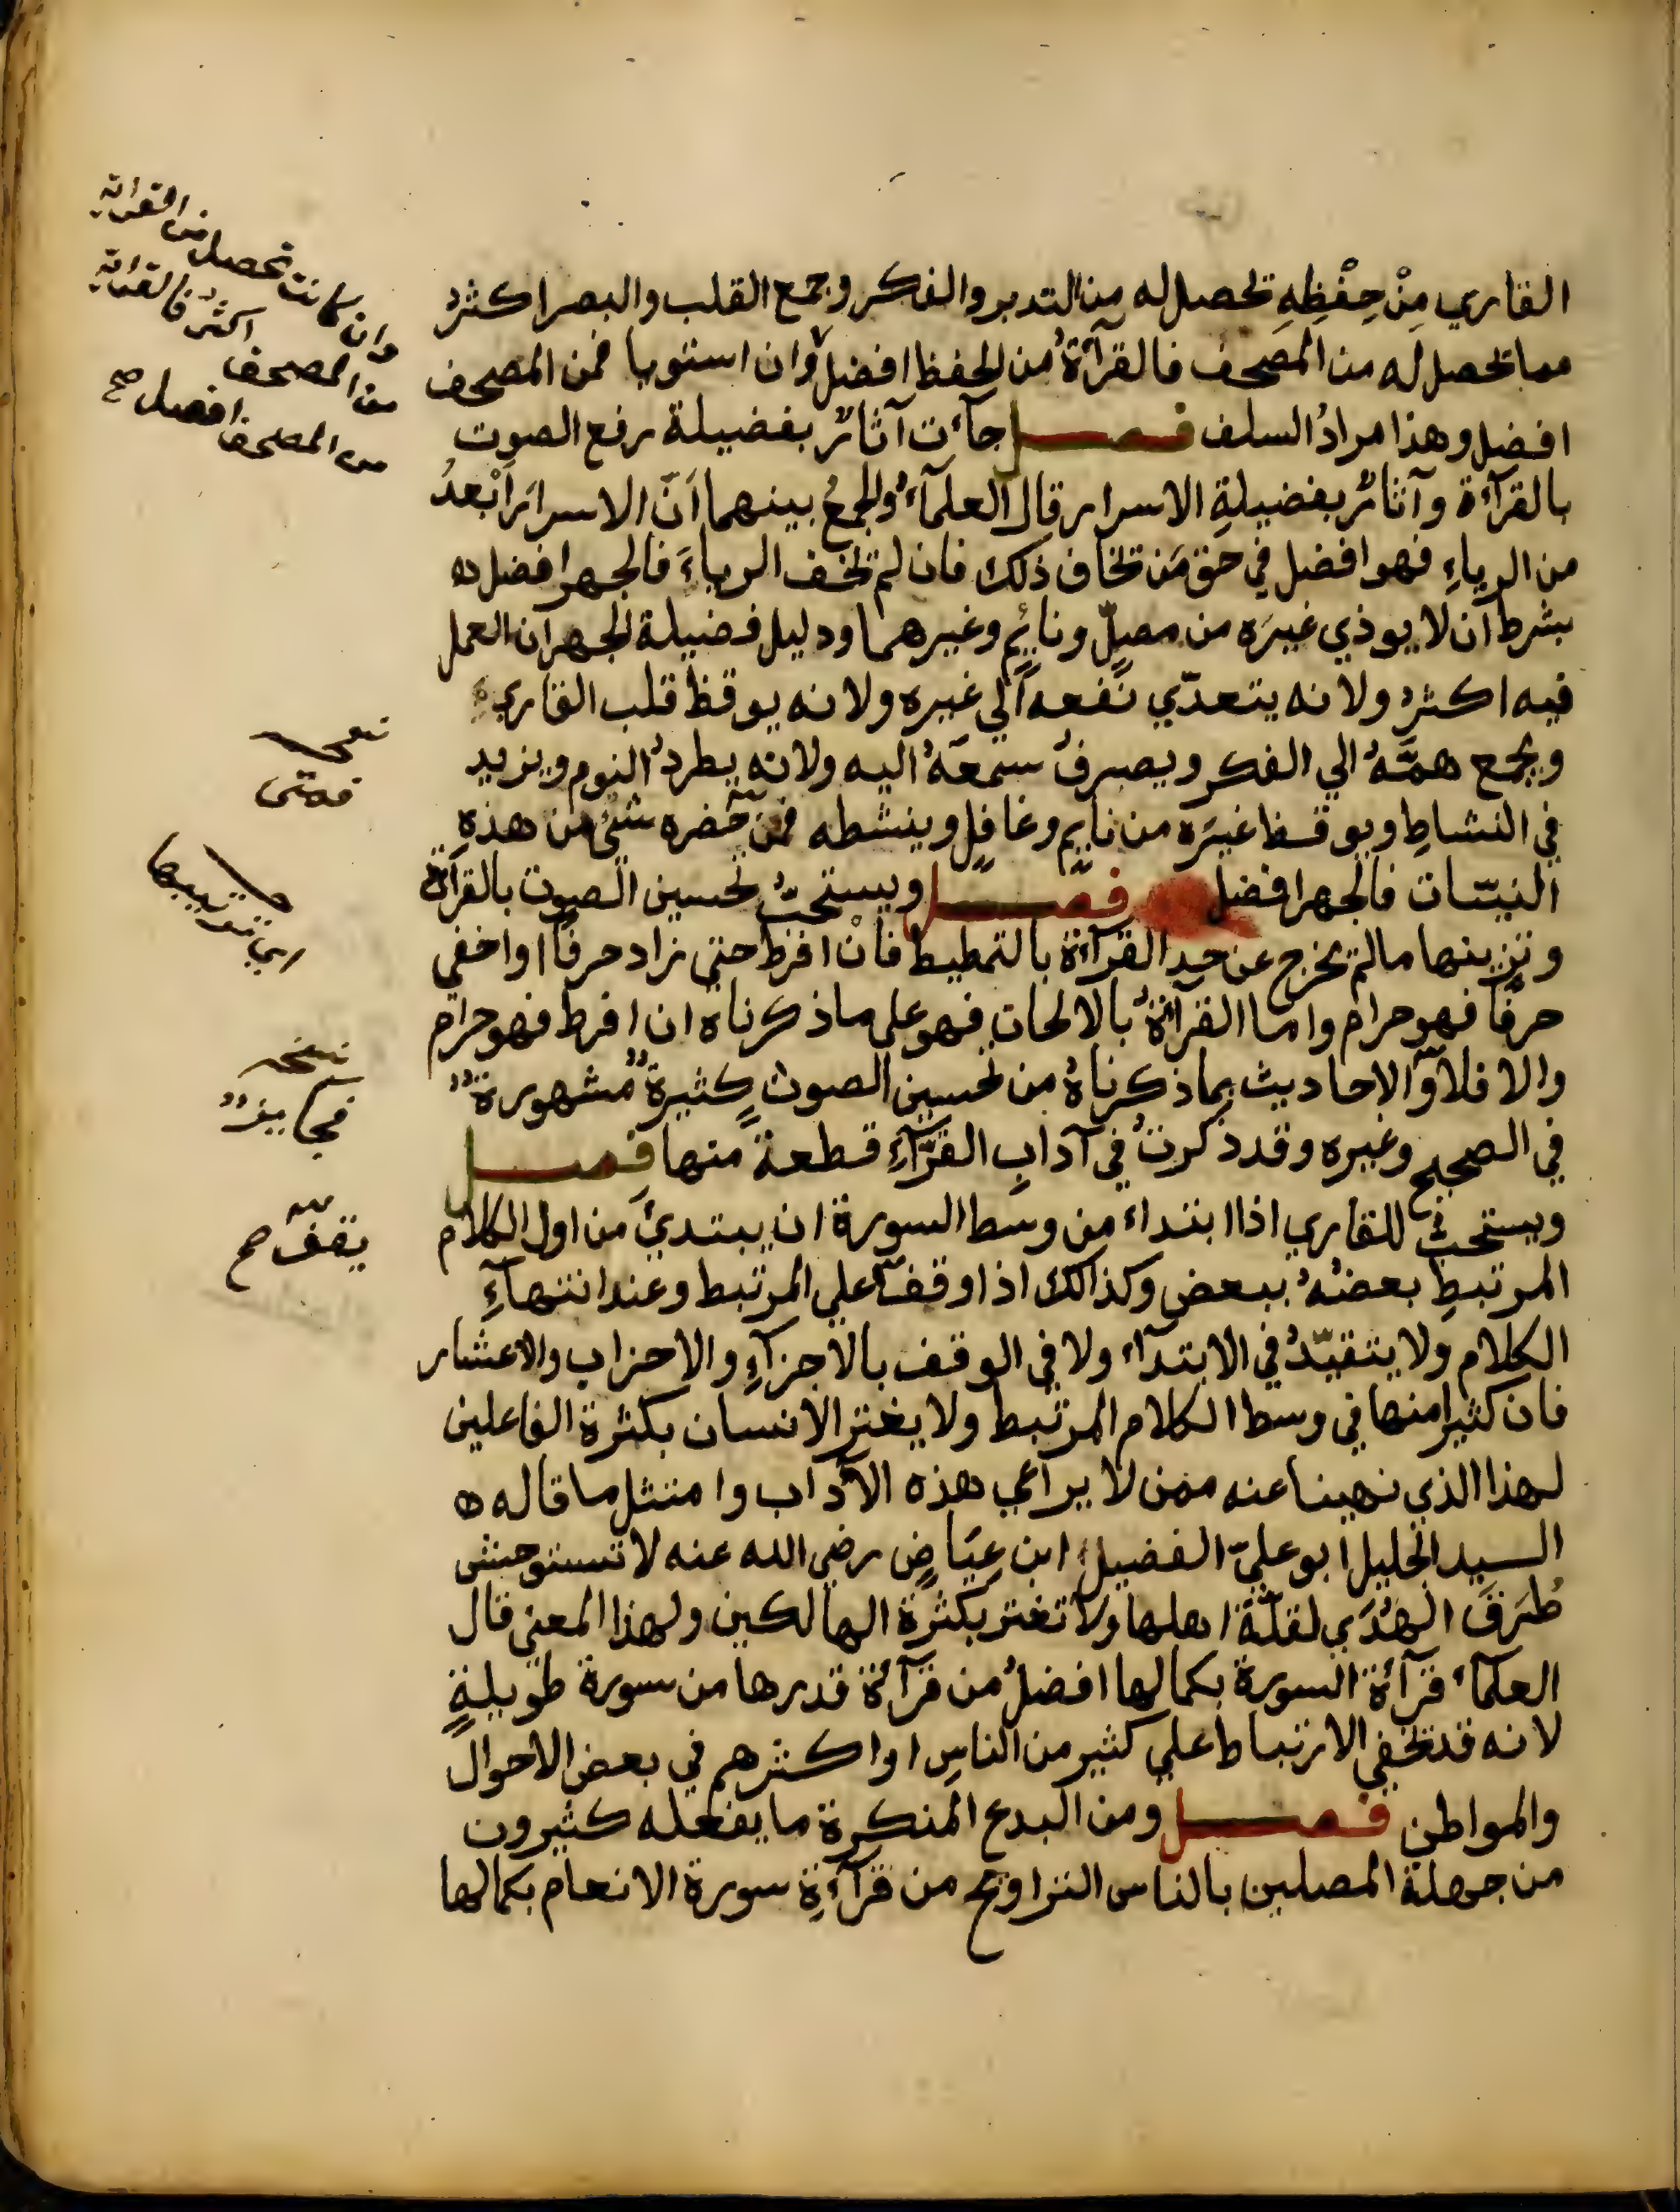 القاري مِنْ حِفْظِهِ تحصل له من التدبر والفكر وجمع القلب والبصر اكثرُ
مما تحصل له من المصحف فالقرآءةُ من الحفظ افضل وان استويا فمن المصحف
افضل وهذا مرادُ السلف فصل جآءت آثارٌ بفضيلة رفع الصوت
بالقرآءة وآثارٌ بفضيلةِ الاسرار قال العلمآءُ والجمعُ بينهما اَنّ الاسرارَ اَبْعدُ
من الرياءِ فهو افضل في حق مَن تخاف ذلك فان لم تخف الرياءَ فالجهر افضل ه
بشرط ان لا يوذي غيرَه من مصلٍّ ونائمٍ وغيرهما ودليل فضيلة الجهر ان العمل
فيه اكثرُ ولانه يتعدّي نفعه الي غيره ولانه يوقظ قلب القاريءِ
ويجمع همَّهُ الي الفكر ويصرفُ سمعَهُ اليه ولانه يطردُ النوم ويزيد
في النشاطِ ويوقظ غيرَه من نايمٍ وغافلٍ وينشطه فمن حضره شئ من هذهِ
النيّات فالجهر افضل فصل ويستحبُّ تحسين الصوت بالقرآءة
وتزيينها ما لم يخرج عن حد القرآءة بالتمطيط فانْ افرط حتي زاد حرفًا او اخفي
حرفًا فهو حرام واما القرآءةُ بالالحان فهو علي ما ذكرناه ان افرط فهو حرام
والا فلا والاحاديث بما ذكرناهُ من تحسين الصوت كثيرةٌ مشهورةٌ
في الصحيح وغيره وقد ذكرتُ في آدابِ القرّآءِ قطعةً منها فصل
ويستحبُّ للقاري اذا ابتداء من وسط السورة ان يبتديَ من اول الكلام
المرتبطِ بعضُهُ ببعض وكذالك اذا وقف علي المرتبط وعند انتهآءِ
الكلام ولا يتقيّدُ في الابتدآء ولا في الوقف بالاجزآءِ والاحزاب والاعشار
فان كثيرا منها في وسط الكلام المرتبط ولا يغتر الانسان بكثرة الفاعلين
لهذا الذي نهينا عنه ممن لا يراعي هذه الآداب وامتثل ما قاله ه
السيد الجليل ابو عليّ الفضيل ابن عِيَاضٍ رضي الله عنه لا تستوحش
طُرَقَ الهُدَي لقلّة اهلها ولا تغتر بكثرة الهالكين ولهذا المعني قال
العلمآء قرآءة السورة بكمالها افضلُ من قرآءة قدرها من سورة طويلةٍ
لانه قد تخفي الارتباط علي كثير من الناسِ او اكثرهم في بعض الاحوال
والمواطن فصل ومن البدع المنكرة ما يفعله كثيرون
من جهلة المصلين بالناس التراويح من قرآءةِ سورة الانعام بكمالها
وان كانت تحصل من القراة
من المصحف اكثرُ فالقراة
من المصحف افضل صح
فمتى
نسخه
يقف صح